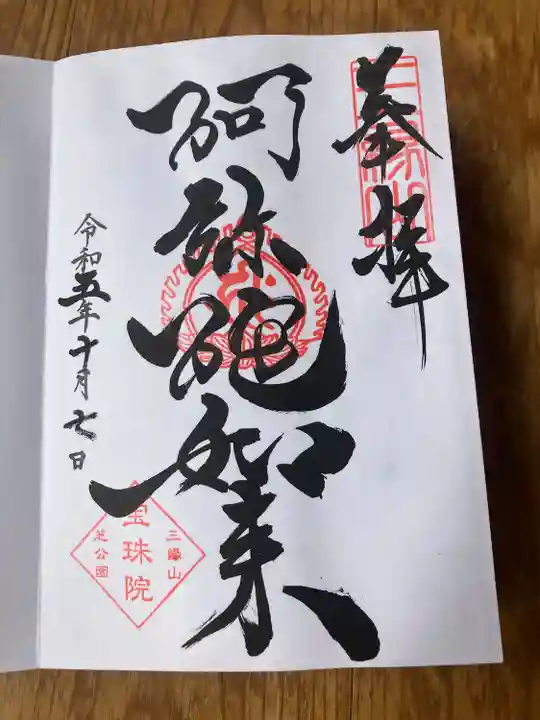 奉拝
三縁山
阿弥陀如来
令和五年十月七日
三緣山
宝珠院
芝公園